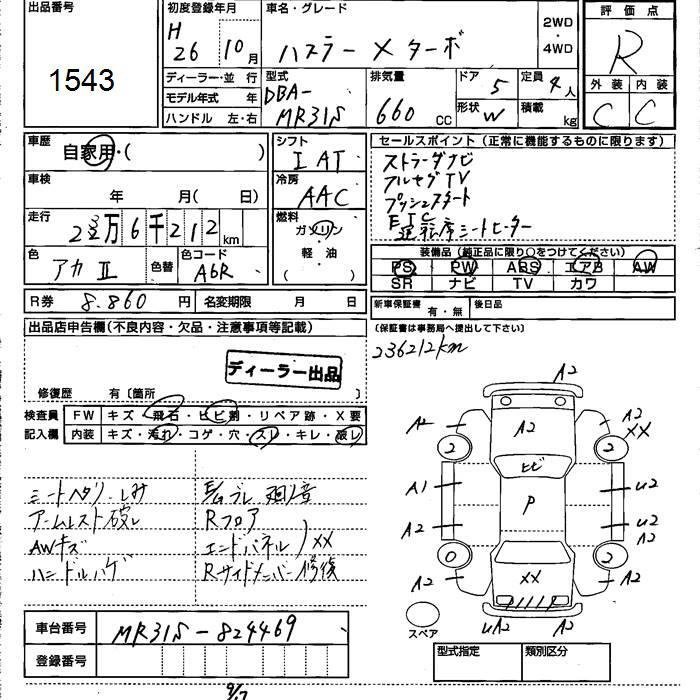 出品番号
1543
初度登録年月
H
26
10月
車名・グレード
ハスラー Xターボ
2WD
・
4WD
評価点
R
外装 内装
C C
ディーラー・並行
モデル年式 年
ハンドル 左・右
型式
DBA-
MR31S
排気量
660 CC
ドア 5
形状 W
定員 4人
積載 kg
車歴
自家用・( )
車検
年 月( 日)
走行
23万6千212km
色
アカII
色替
色コード
A6R
シフト
IAT
冷房
AAC
燃料
ガソリン
・
軽油
( )
セールスポイント(正常に機能するものに限ります)
ストラーダナビ
フルセグTV
プッシュスタート
ETC
運転席シートヒーター
装備品(純正品に限り○をつけてください)
PS PW ABS エアB AW
SR ナビ TV カワ
R券 8.860円
名変期限 月 日
新車保証書 有・無
後日品
(保証書は事務局へ提出して下さい)
出品店申告欄(不良内容・欠品・注意事項等記載)
236212km
ディーラー出品
修復歴 有〔箇所 〕
検査員 FW キズ・飛石・ヒビ割・リペア跡・X要
記入欄 内装 キズ・汚れ・コゲ・穴・スレ・キレ・破レ
シートヘタリ シミ
アームレスト破レ
AWキズ
ハンドルハゲ
Rフロア
エンドパネル
Rサイドメンバー修復
XX
A2
A2
A2
A2
XX
2
2
ヒビ
A1
U2
P
A2
U2
A2
0
2
A2
XX
A2
スペア
UA2
A2
車台番号 MR31S-824469
登録番号
型式指定 類別区分